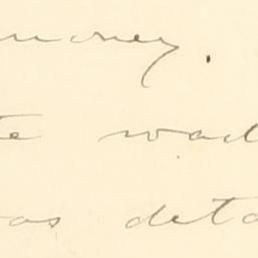 money.
te wad
as deta